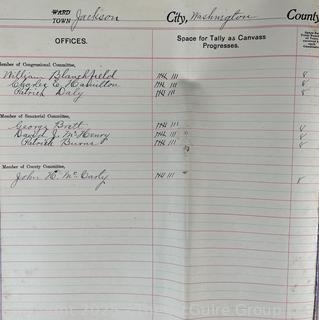 WARD
TOWN Jackson City, Washington County
OFFICES. Space for Tally as Canvass Progresses.
Member of Congressional Committee,
William Blanchfield 8
Charles E. Hamilton 8
Patrick Daly 8
Member of Senatorial Committee,
George Brett 8
David J. McHenry 8
Patrick Burns 8
Member of County Committee,
John H. McCarty 8